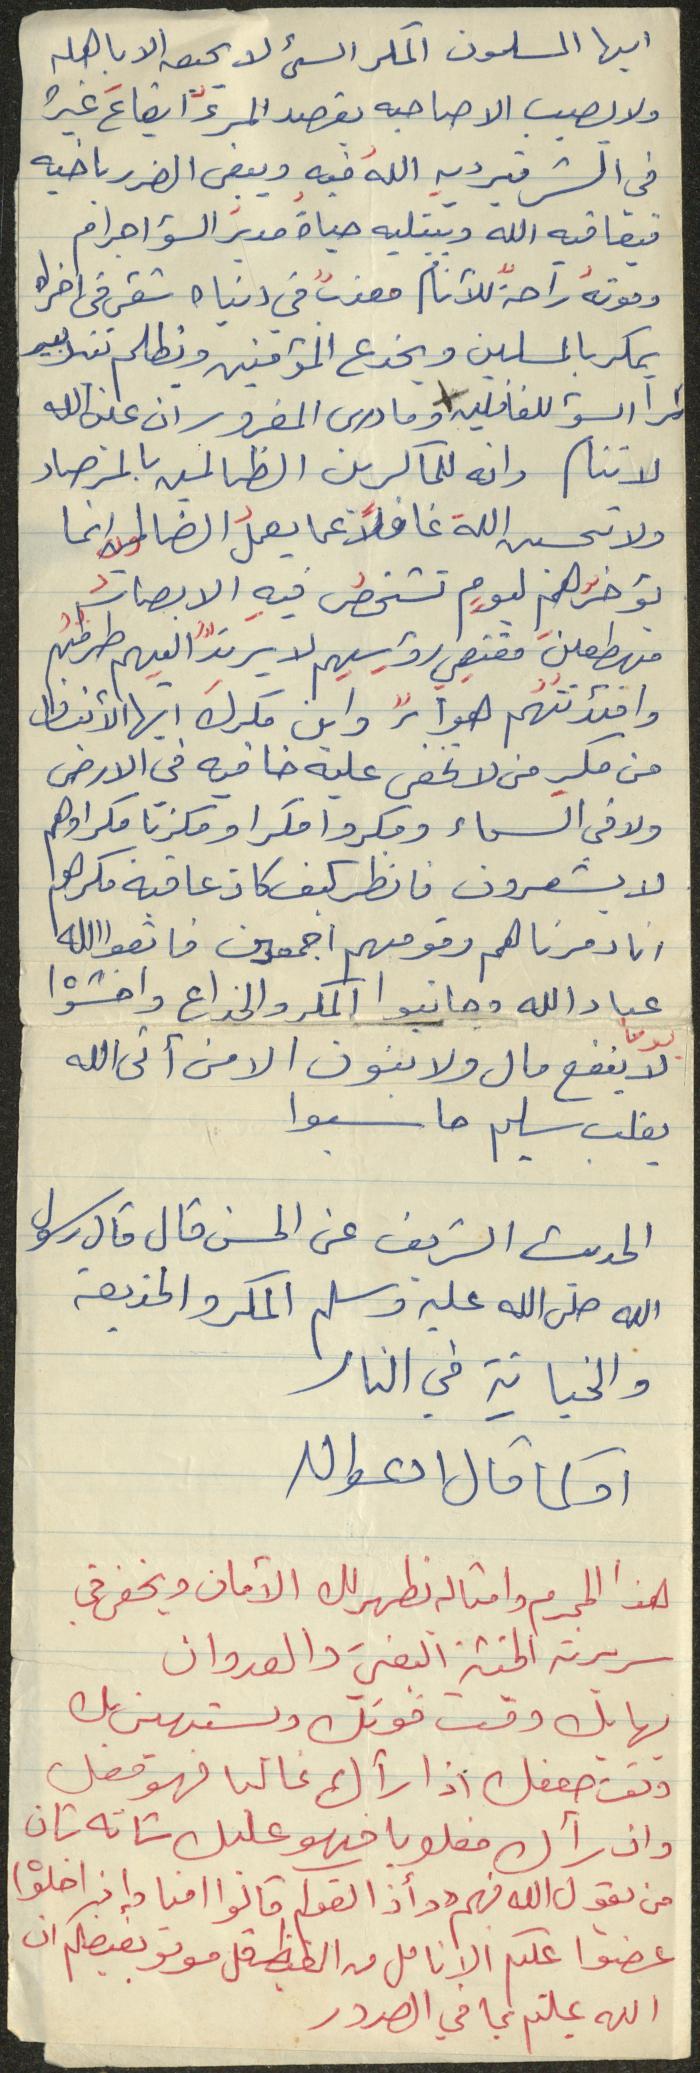 ايها المسلمون المكر السئ لا يحيق الا باهله
ولا يصيب الا صاحبه يقصد المرءُ ايقاعَ غيرهِ
في الشر فيرديهِ اللهُ فيه ويبغي الضرر باخيه
فيعاقبه الله ويبتليه حياةُ مدبرُ السؤ اجرام
وموتهُ راحةٌ للأنام معذبٌ في دنياه شقي في اخراه
يمكر بالمسلمين ويخدع المؤمنين ويظلم
السؤ للغافلين وما درى المغرور ان عين الله
لا تنام وانه للماكرين الظالمين بالمرصاد
ولا تحسبن الله غافلاً عما يعملُ الضالمون انما
يؤخرُهم ليومٍ تشخصُ فيهِ الابصارُ
مهطعينَ مقنعي رؤسِهِم لا يرتدُّ اليهم طرفُهُم
وافئدتُهُم هواءٌ واين مكركَ ايها الأنسان
من مكرِ من لا تخفى عليه خافيه في الارض
ولا في السماء ومكروا مكرا ومكرنا مكرا وهم
لا يشعرون فانظر كيف كان عاقبة مكرهم
انا دمرناهم وقومهم اجمعين فاتقوا الله
عباد الله وجانبوا المكر والخداع واخشوْا
يوماً
لا ينفع مال ولا بنون الا من أتى الله
بقلب سليم حاسبوا
الحديث الشريف عن الحسن قال قال رسول
الله صلى الله عليه وسلم المكر والخديعة
والخيانة في النار
اوكما قال ادعوا الله
هذا المجرم وامثاله يظهر لك الأمان ويخفي في
سريرته الخبثة البغي والعدوان
يهابك وقت قوتك ويستهين بك
وقت ضعفك اذا رآك غالبا فهو معك
وان رآك مغلوبا فهو عليك شانه شان
من يقول الله فهم وأذا لقوكم قالوا امنا وإذا خلوْا
عضوا عليكم الانامل من الغيظ قل موتو بغيضكم ان
الله عليم بما في الصدور